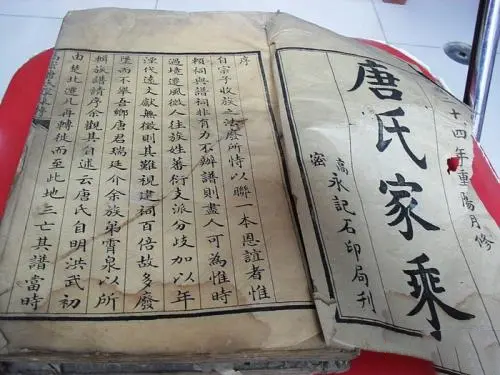 二十四年重陽月修
唐氏家乘
高永記石印局刊
密
序
自宗子收族之法廢所恃以聯一本恩誼者惟
賴祠與譜祠非有力不辦譜則盡人可為惟時
過境遷風微人往族姓蕃衍支派分歧加以年
湮代遠文獻無徵則其難視建祠百倍故多廢
墜而不舉吾鄉唐君瑞廷介余族弟霄泉以所
輯族譜請序余觀其自述云唐氏自明洪武初
由楚北遷几再轉徙而至此地三亡其譜當時